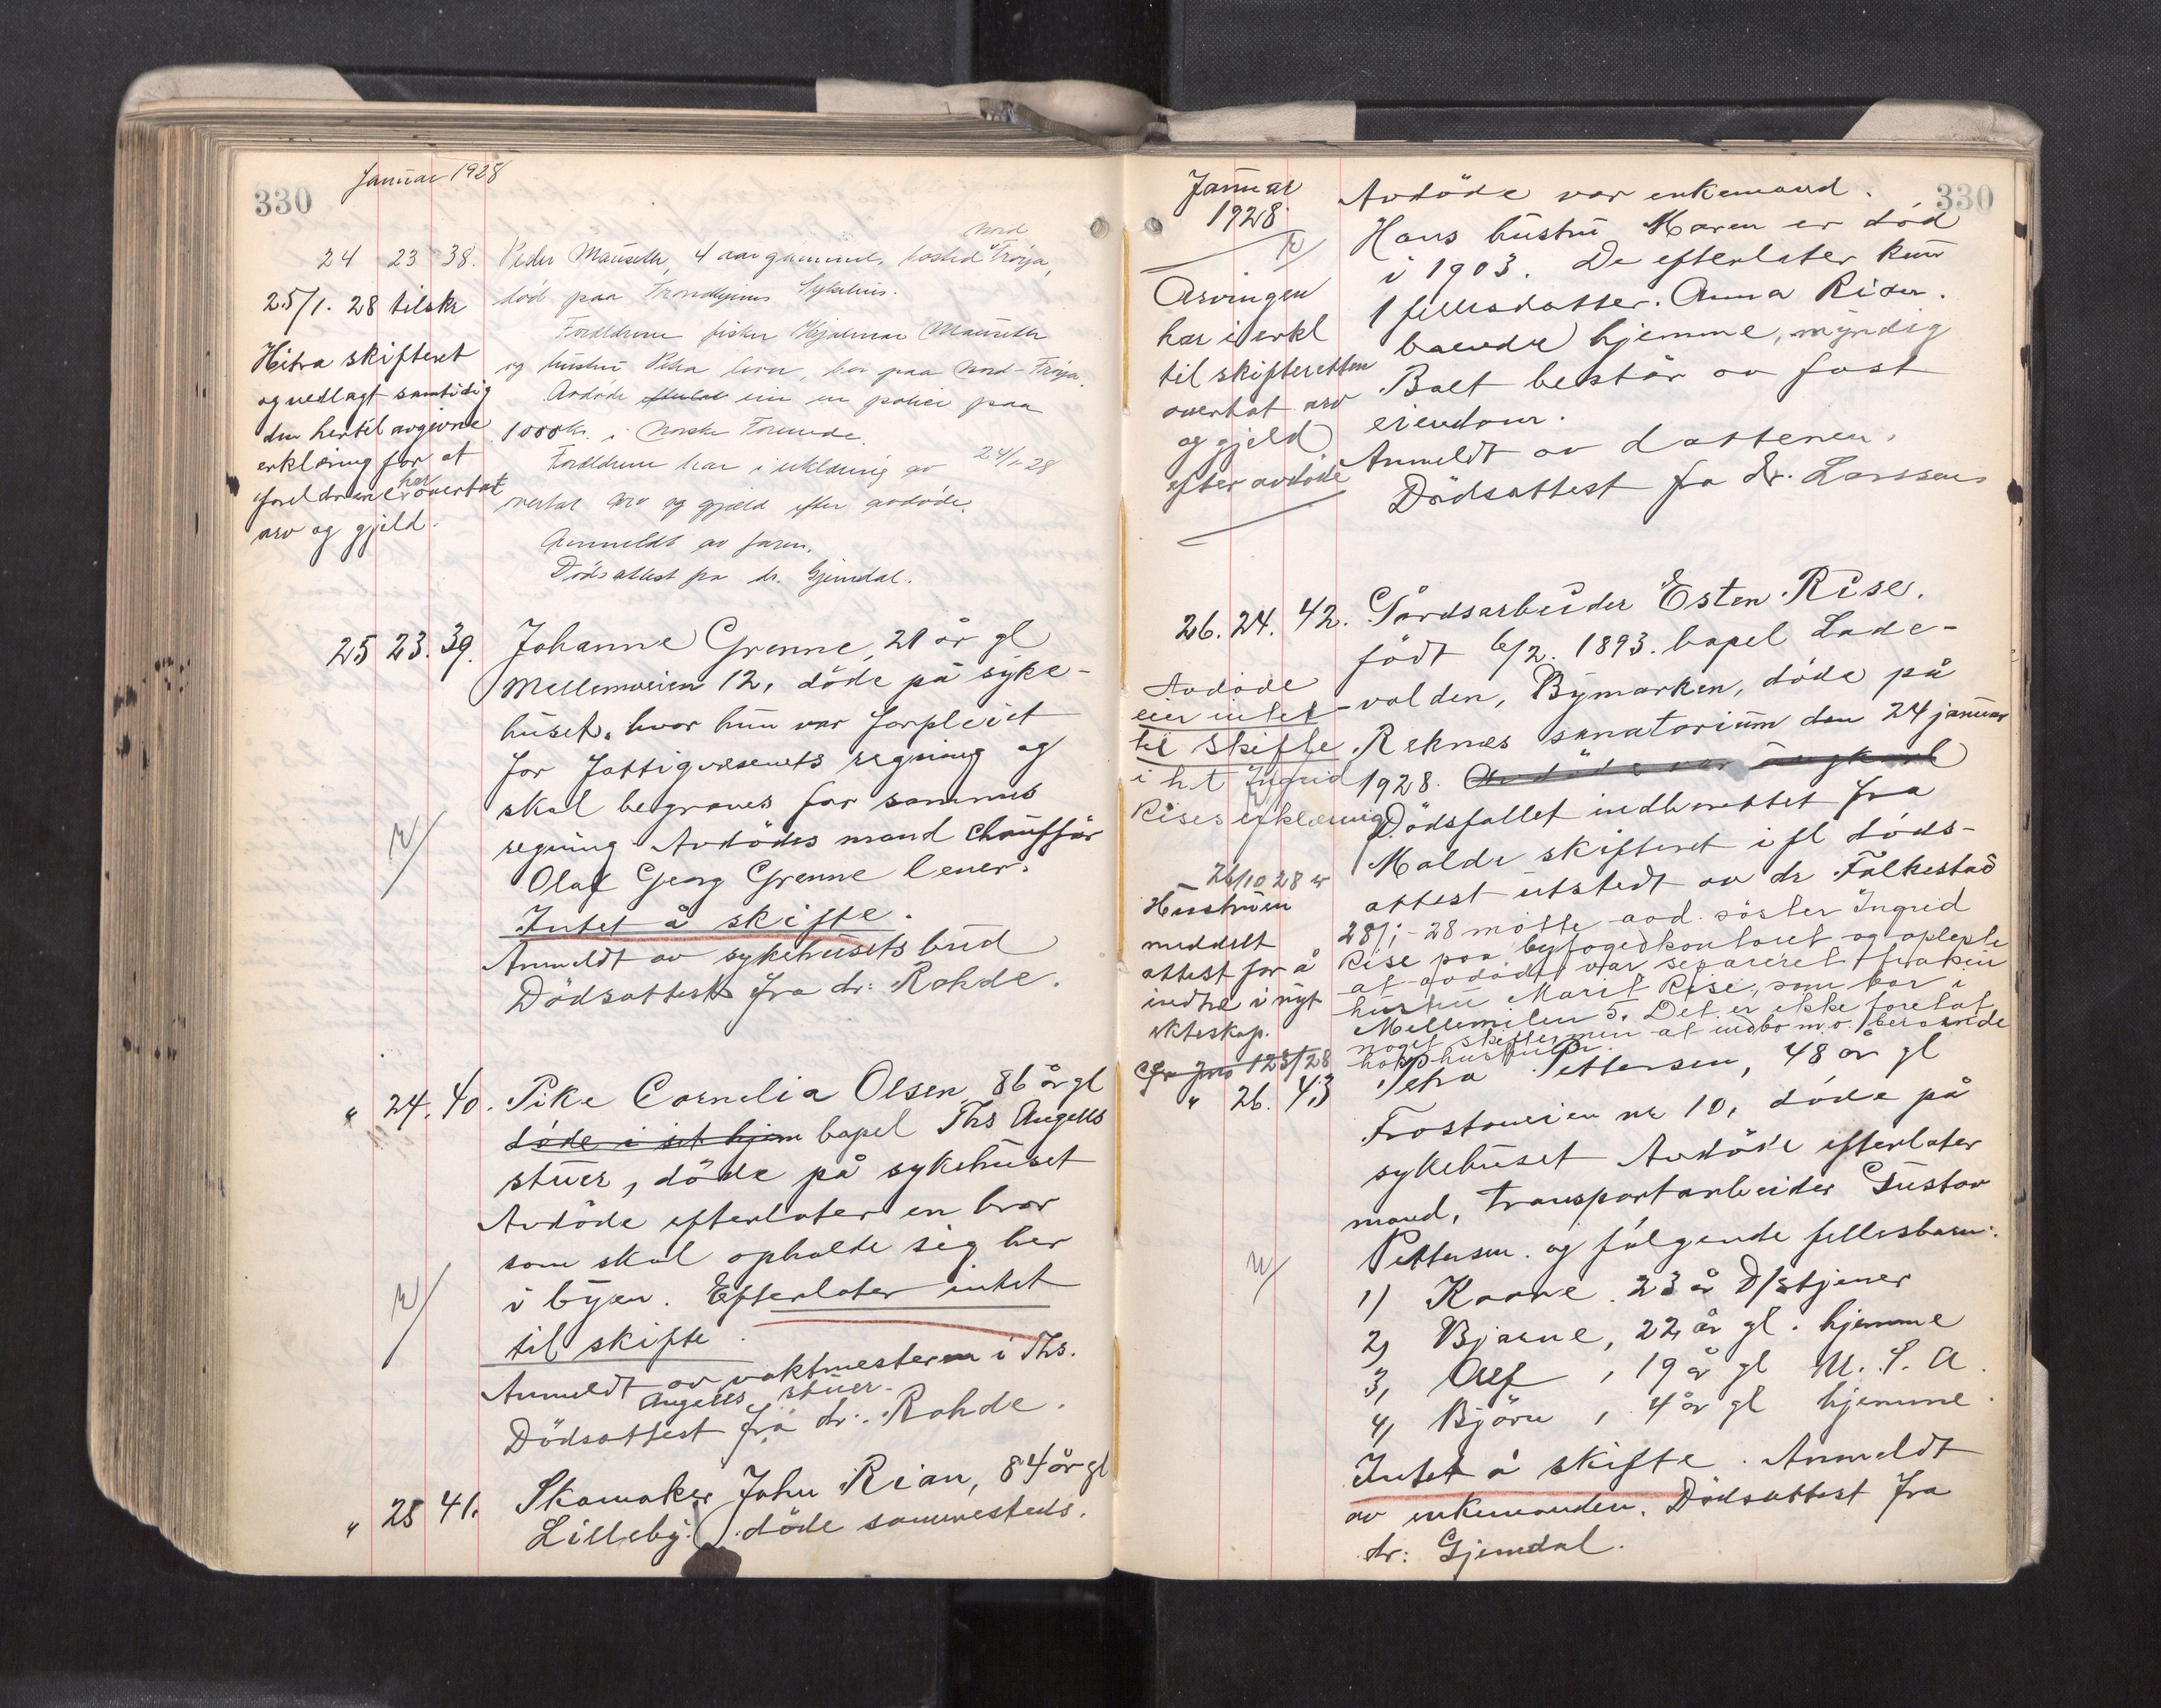 330
Januar 1928
24 23 38. Peder Mauseth, 4 aar gammel, bosted Nord Frøya,
død paa Trondhjems Sykehus.
Forældrene fisker Hjalmar Mauseth
og hustru Petra lever, bor paa Nord-Frøya.
Avdøde efterlot en polise paa
1000 kr. i Norske Forenede.
Forældrene har i erklæring av 24/1-28
overtat arv og gjæld efter avdøde.
Anmeldt av faren.
Dødsattest fra dr. Gjemdal.
25/1. 28 tilskr
Hitra skifteret
og vedlagt samtidig
den hertil avgivne
erklæring for at
foreldrene har overtat
arv og gjeld.
25 23. 39. Johanne Grenne, 21 år gl
Mellemveien 12, döde på syke-
huset, hvor hun var forpleiet
for Fattigvesenets regning og
skal begraves for sammes
regning. Avdödes mand chaufför
Olaf Georg Grenne lever.
Intet å skifte.
Anmeldt av sykehusets bud
Dödsattest fra dr: Rohde.
" 24. 40. Pike Cornelia Olsen, 86 år gl
döde i sit hjem bopel Ths Angells
stuer, döde på sykehuset
Avdöde efterlater en bror
som skal opholde sig her
i byen. Efterlater intet
til skifte.
Anmeldt av vaktmesteren i Ths.
Angells stuer.
Dödsattest fra dr: Rohde.
" 25 41. Skomaker John Rian, 84 år gl
Lilleby. döde sammesteds.
330
Januar
1928
Avdöde var enkemand.
Hans hustru Maren er död
i 1903. De efterlater kun
1 fellesdatter. Anna Rian.
boende hjemme, myndig
Boet består av fast
eiendom.
Anmeldt av datteren.
Dödsattest fra dr. Larssen
Arvingen
har i erkl
til skifteretten
overtat arv
og gjeld
efter avdöde
26. 24. 42. Gårdsarbeider Esten Rise.
födt 6/2. 1893. bopel Lade-
volden, Bymarken, döde på
Reknes sanatorium den 24 januar
1928. Avdöde var ungkarl
Dödsfallet indberettet fra
Molde skifteret ifl döds-
attest utstedt av dr Falkestad
28/1-28 møtte avd. søster Ingrid
Rise paa byfogedkontoret og oplyste
at avdøde var separeret fra sin
hustru Marit Rise, som bor i
Mellemilen 5. Det er ikke foretat
noget skifte, men at indbo m.v. beroende
hos hustruen.
Avdöde
eier intet
til skifte
i h.t Ingrid
Rises erklæring
26/10 28 er
Hustruen
meddelt
attest for å
indtre i nyt
ekteskap.
Cfr Jno 123/28
" 26. 43 Petra Pettersen, 48 år gl
Frostaveien nr 10, döde på
sykehuset Avdöde efterlater
mand, Transportarbeider Gustav
Pettersen. og fölgende fellesbarn:
1) Kaare. 23 år D/Stjener
2, Bjarne, 22 år gl. hjemme
3, Alf, 19 år gl U. S. A.
4, Björn, 4 år gl hjemme.
Intet å skifte. Anmeldt
av enkemanden. Dödsattest fra
dr: Gjemdal.